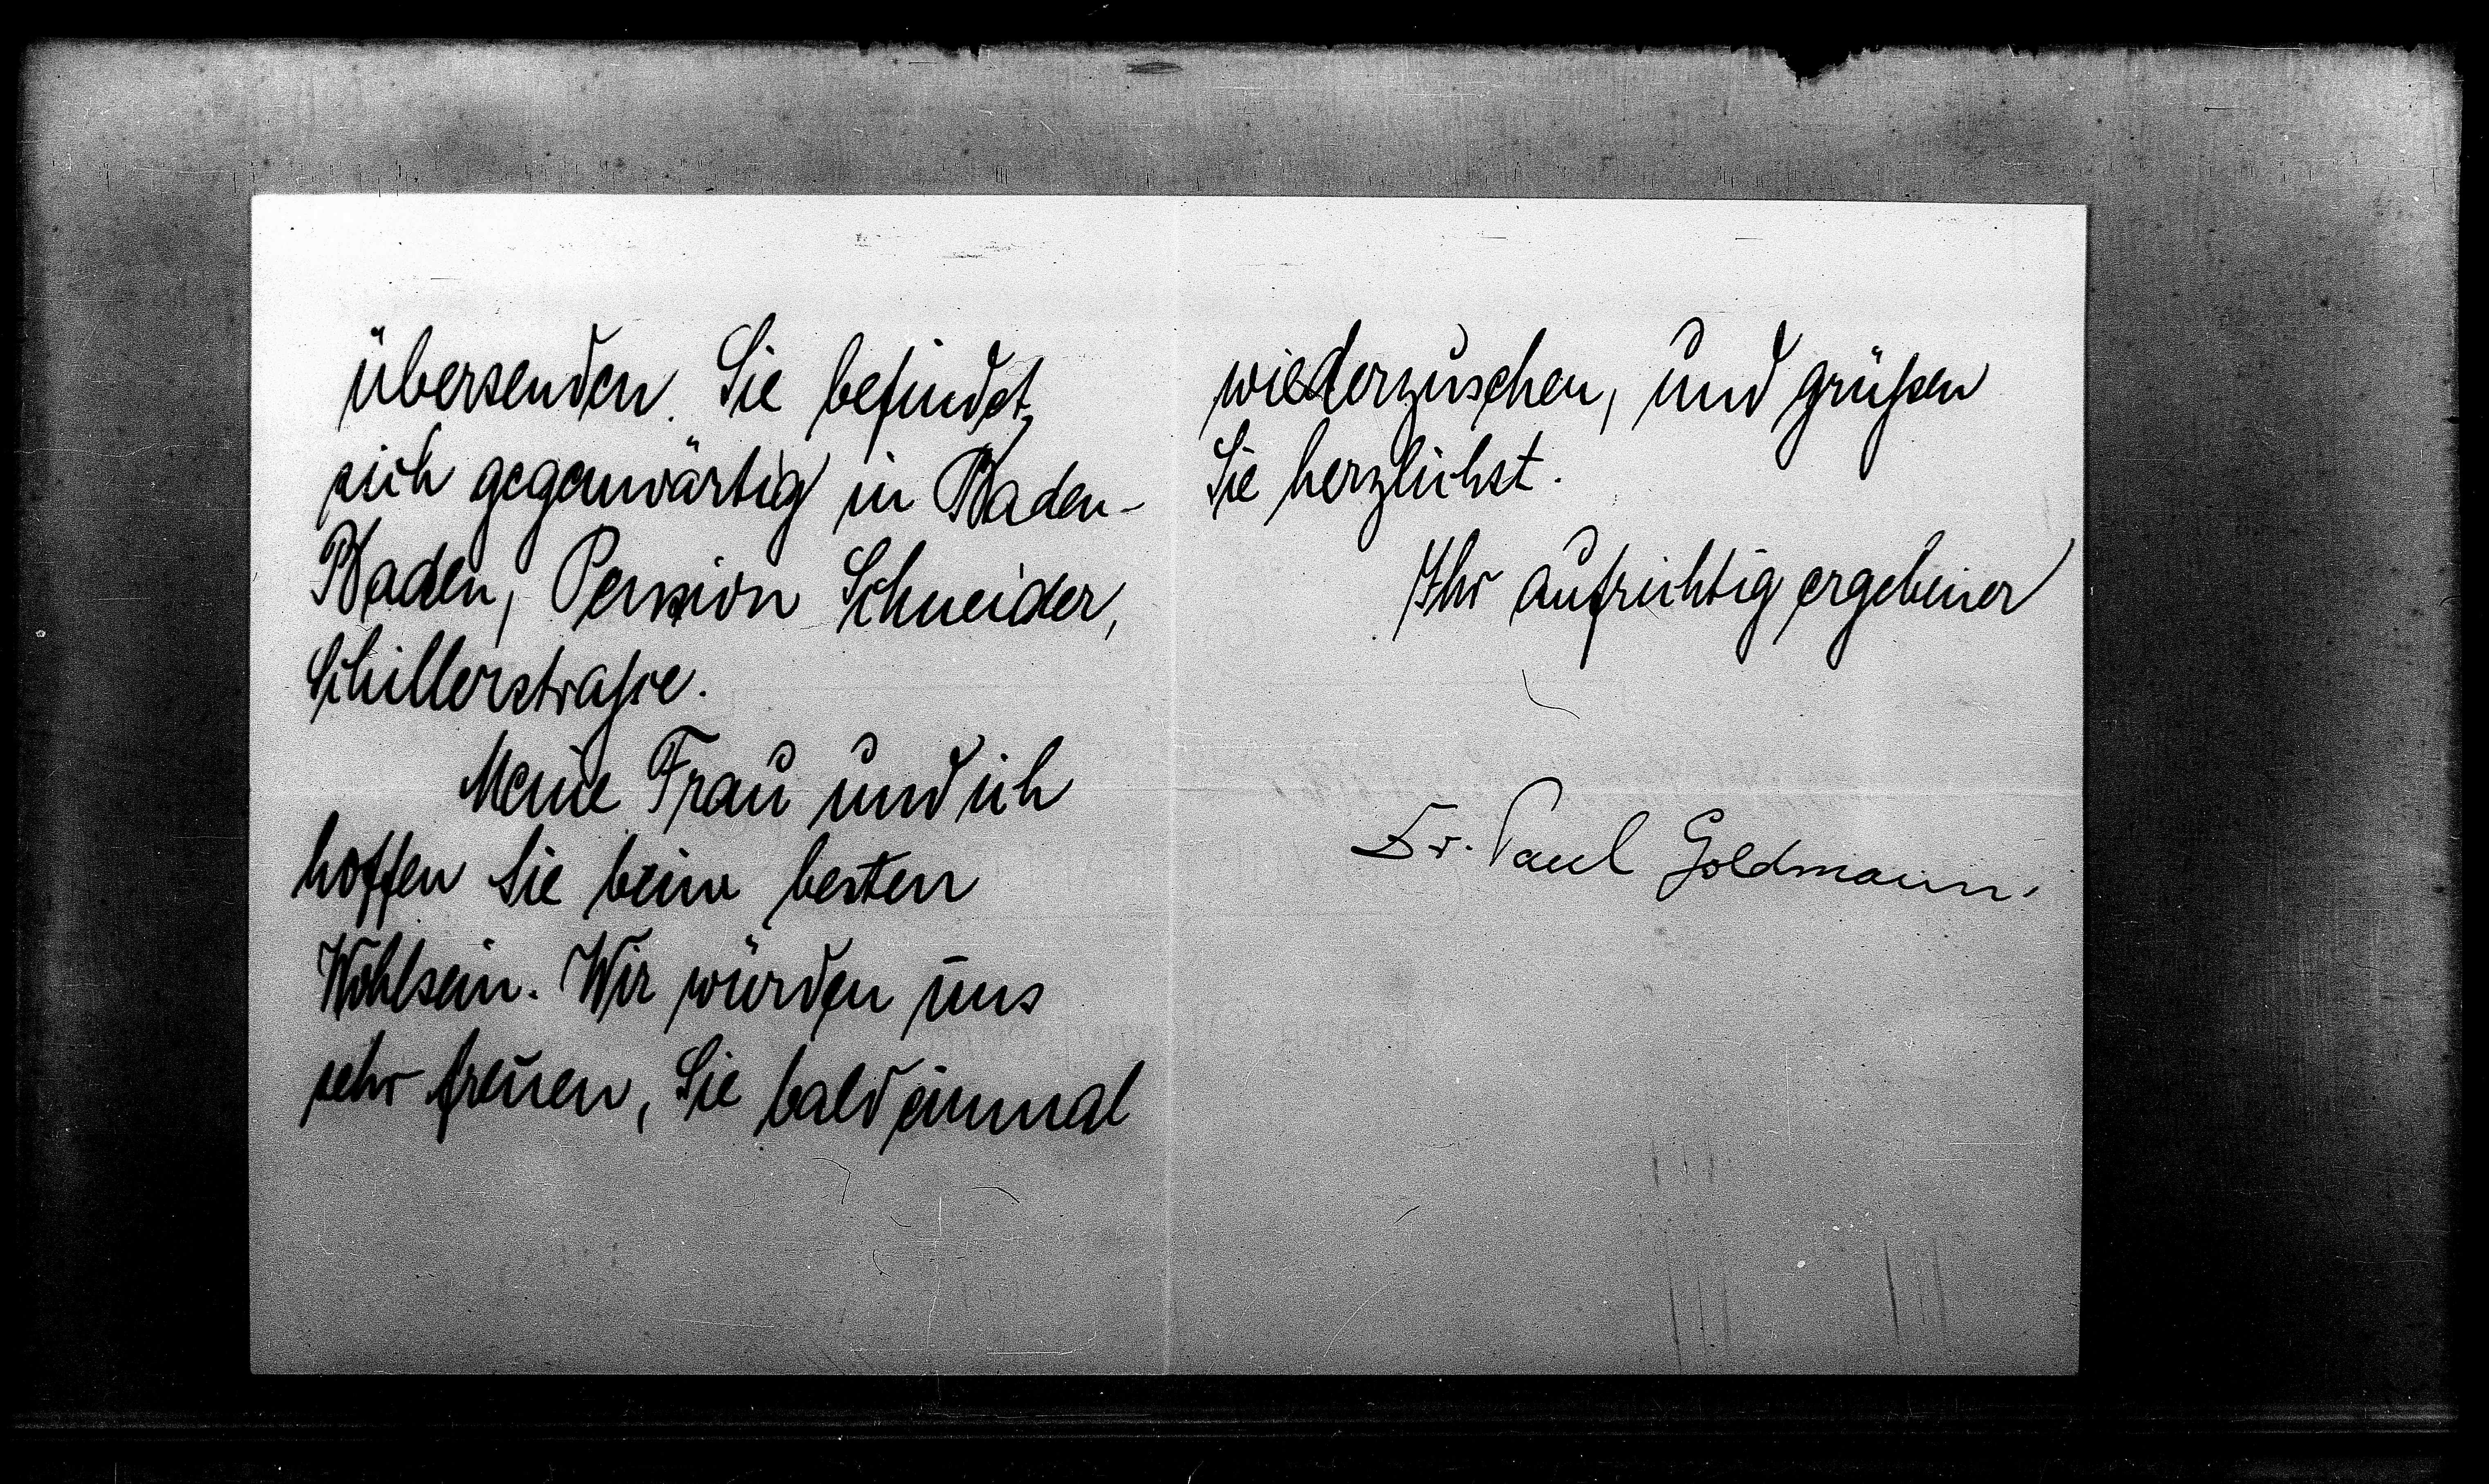 übersenden. Sie befindet
sich gegenwärtig in Baden-
Baden, Pension Schneider,
Schillerstraße.
Meine Frau und ich
hoffen Sie beim besten
Wohlsein. Wir würden uns
sehr freuen, Sie bald einmal
wiederzusehen, und grüßen
Sie herzlichst.
Ihr aufrichtig ergebener
Dr. Paul Goldmann.